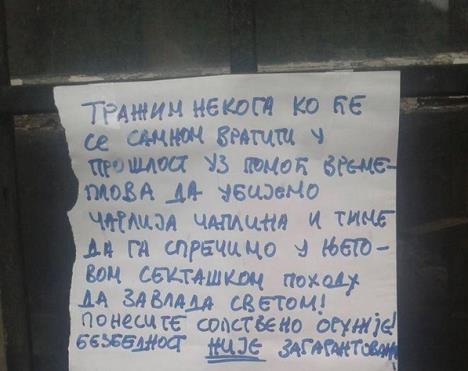 ТРАЖИМ НЕКОГА КО ЋЕ
СЕ САМНОМ ВРАТИТИ У
ПРОШЛОСТ УЗ ПОМОЋ ВРЕМЕ-
ПЛОВА ДА УБИЈЕМО
ЧАРЛИЈА ЧАПЛИНА И ТИМЕ
ДА ГА СПРЕЧИМО У ЊЕГО-
ВОМ СЕКТАШКОМ ПОХОДУ
ДА ЗАВЛАДА СВЕТОМ!
ПОНЕСИТЕ СОПСТВЕНО ОРУЖЈЕ!
БЕЗБЕДНОСТ НИЈЕ ЗАГАРАНТОВАНА!